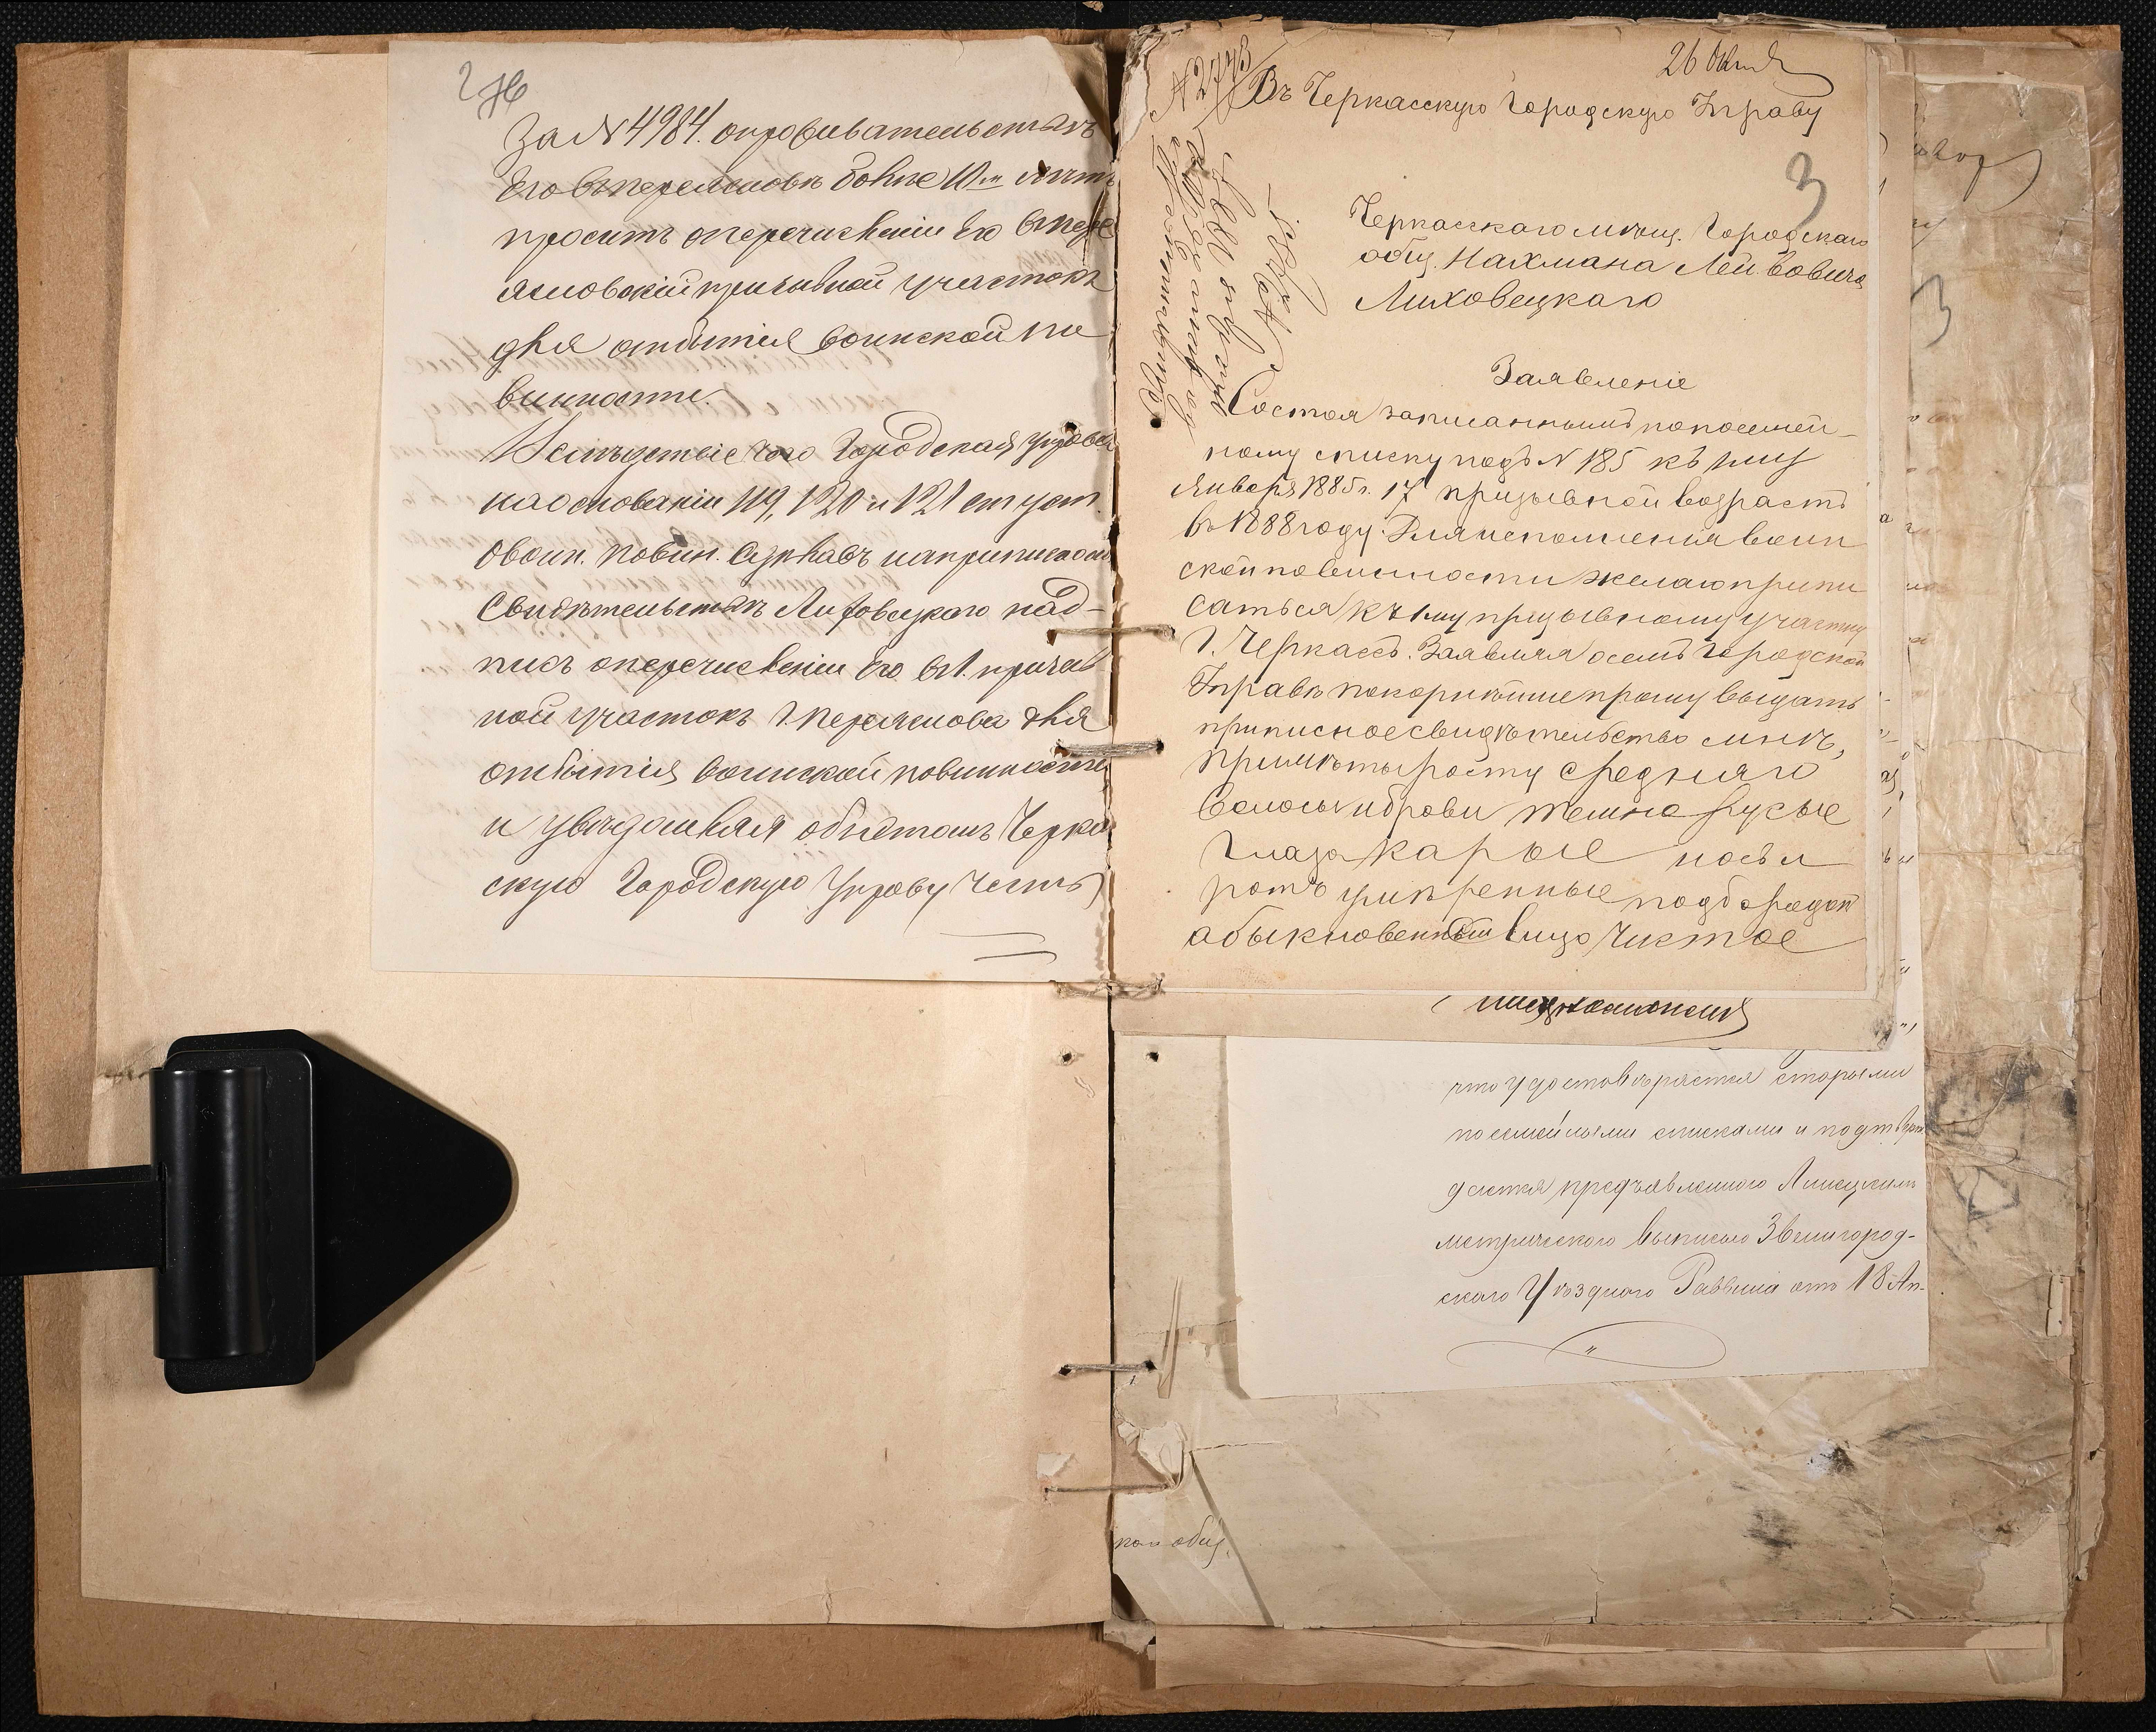 2 об
За № 4984. о проживательствѣ
его въ Переяславѣ болѣе 10ти лѣтъ
проситъ о перечисленіи его въ Пере
яславскій призывной участокъ
для отбытія воинской по
винности.
Вслѣдствіе чего Городская Управа
на основаніи 119, 120 и 121 ст уст.
о воин. повин. сдѣлавъ на приписномъ
свидѣтельствѣ Лиховецкаго над-
пись о перечисленіи его въ 1. призыв
ной участокъ г. Переяслова для
отбытія воинской повинности
и увѣдомляя объ этомъ Черка
скую Городскую Управу честь
26 Октя
№ 2773
Въ Черкасскую Городскую Управу
3
Черкасскаго мѣщ. Городскаго
общ. Нахмана Лейбовича
Лиховецкаго
Заявленіе
Состоя записаннымъ по посемей-
ному списку подъ № 185 къ 1му
Января 1885 г. 17 призывной возрастъ
въ 1888 году. Для исполненія воин
ской повинности желаю припи
саться къ 1му призывному участку
г. Черкассъ. Заявляя о семъ Городской
Управѣ покорнѣйше прошу выдать
приписное свидѣтельство мнѣ,
примѣты росту средняго
волосы и брови темно русые
глаза карые носъ и
ротъ умѣренные подбородок
абыкновенный лицо чистое
что удостовѣряется старыми
посемейными списками и подтверж
дается предъявленного
метрического выписью Звенигород-
скаго Уѣзднаго Раввина отъ 18 Ап-
кои общ.